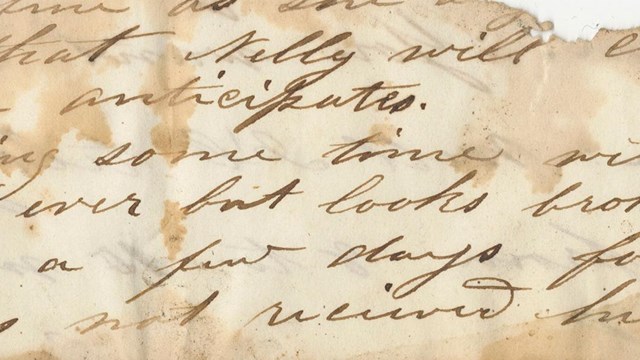 time as she
that Nelly will
anticipates.
some time
ever but looks
a few days
not recieved